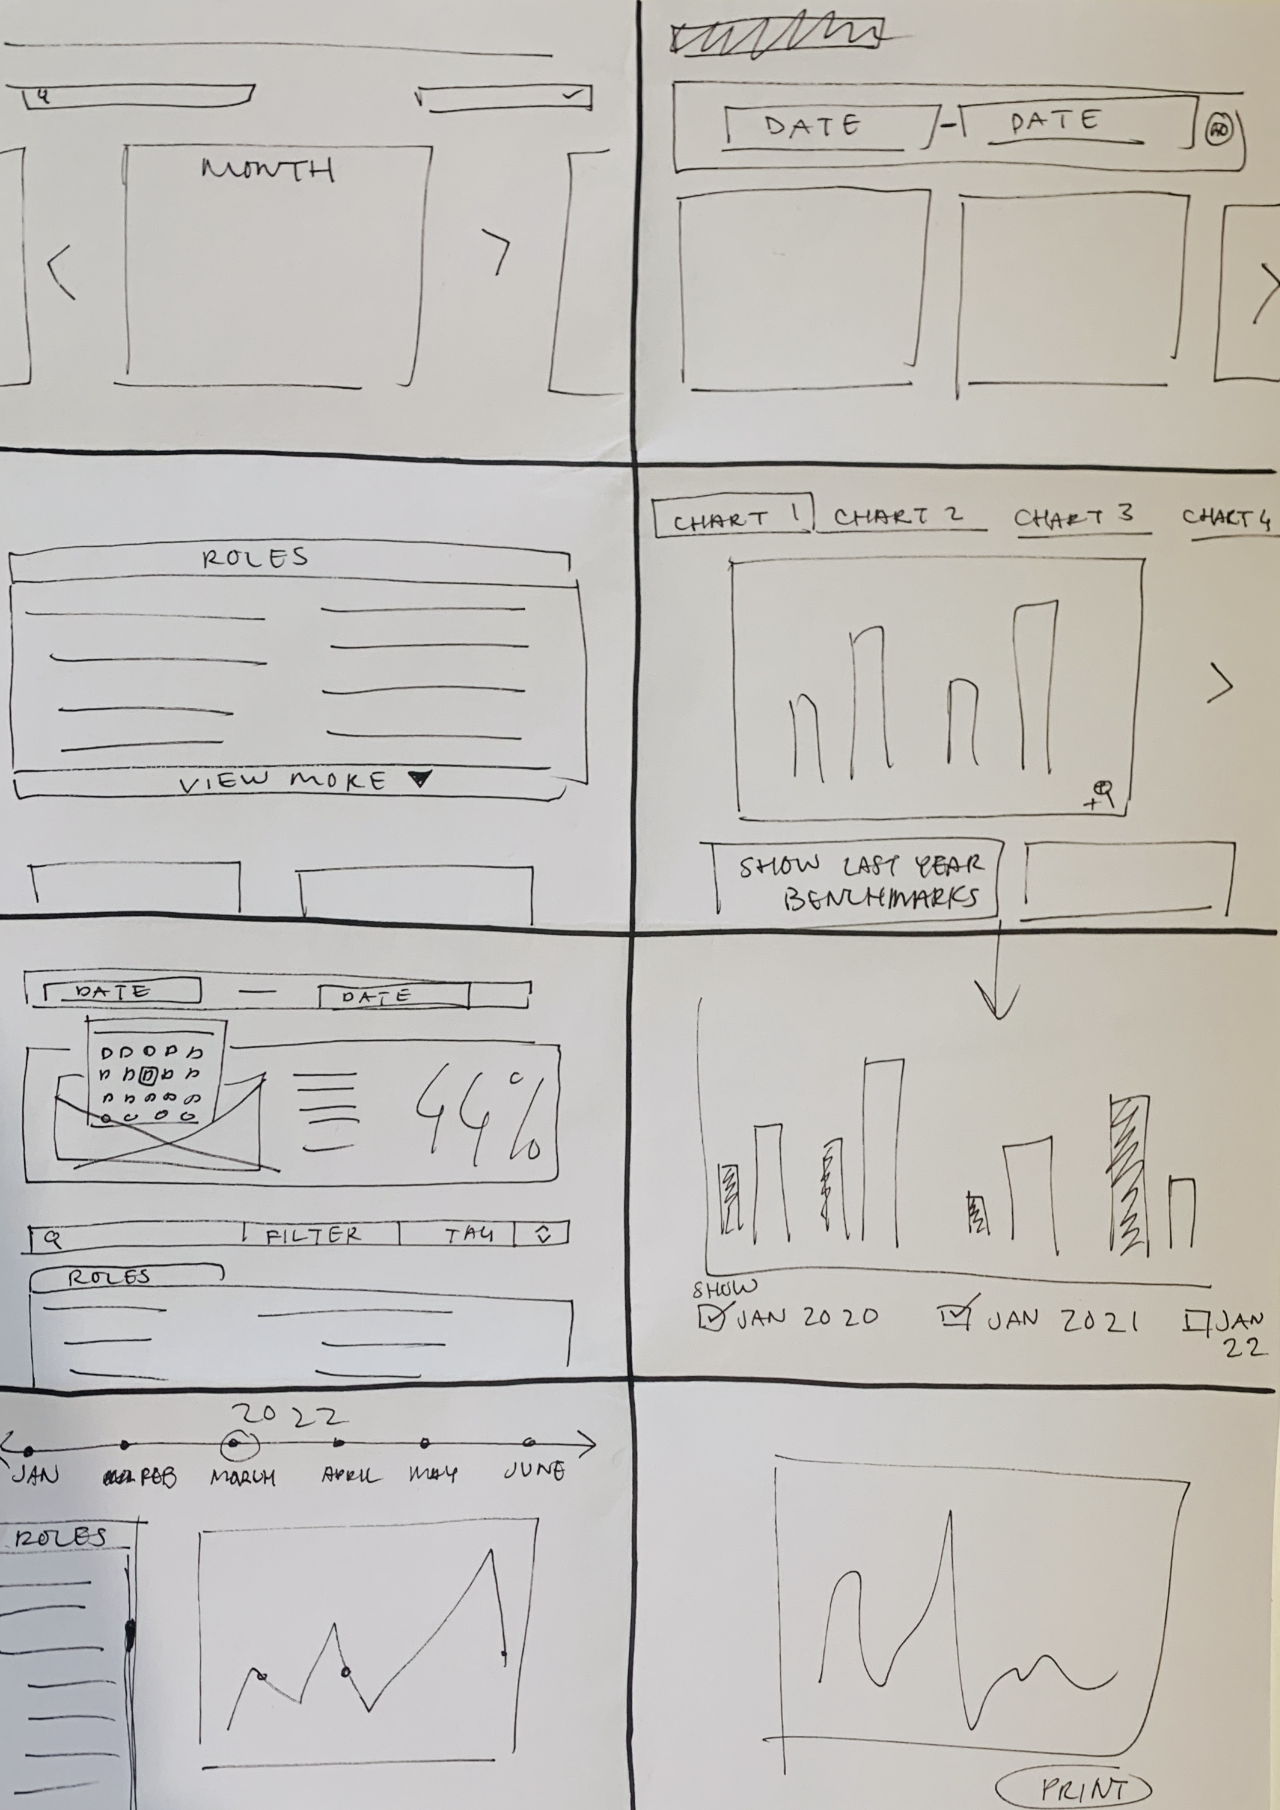 MONTH
DATE - DATE
GO
ROLES
VIEW MORE
CHART 1 CHART 2 CHART 3 CHART 4
SHOW LAST YEAR
BENCHMARKS
DATE — DATE
44%
FILTER TAG
ROLES
SHOW
JAN 2020 JAN 2021 JAN
22
2022
JAN FEB MARCH APRIL MAY JUNE
ROLES
PRINT